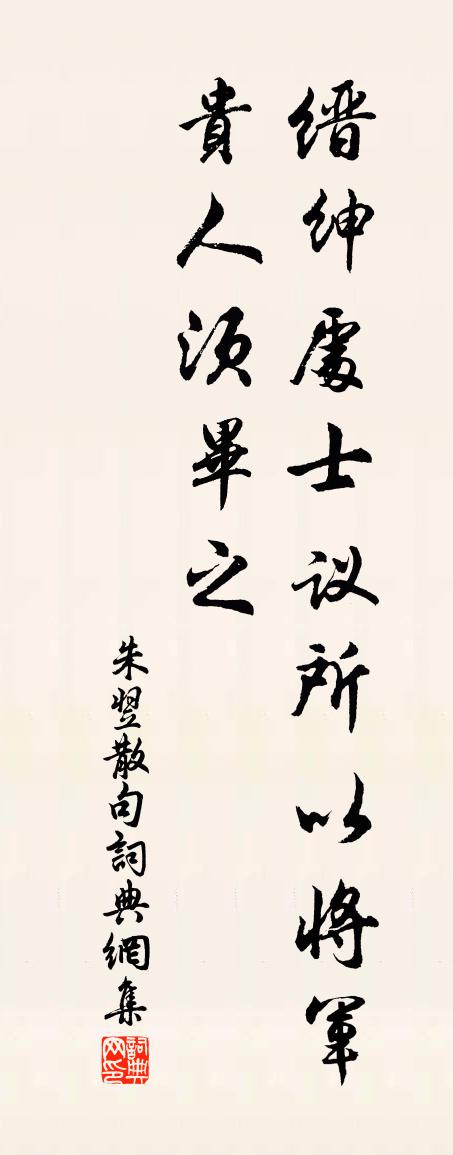 缙绅處士议所以将军
貴人须畢之
朱翌散句詞典網集
詞典网印